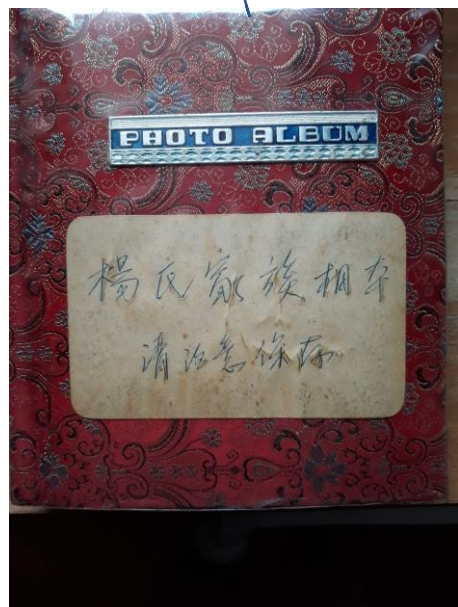 PHOTO ALBUM
楊氏家族相本
请注意保存